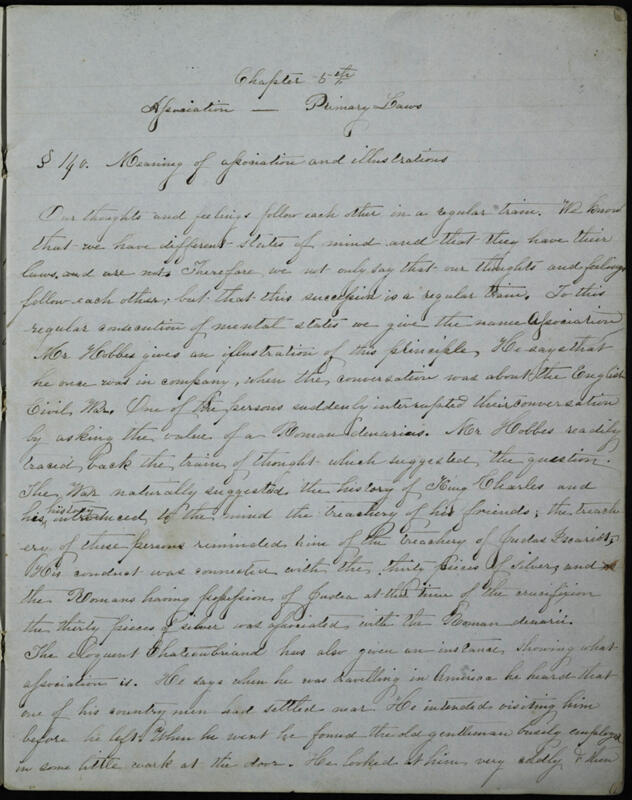 Chapter 5th
Association — Primary Laws
§ 140. Meaning of association and illustrations
Our thoughts and feelings follow each other in a regular train. We know
that we have different states of mind and that they have their
laws, and are not. Therefore we not only say that our thoughts and feelings
follow each other; but that this succession is a regular train. To this
regular consecution of mental states we give the name Association
Mr Hobbes gives an illustration of this principle. He says that
he once was in company, when the conversation was about the English
Civil War. One of the persons suddenly interrupted their conversation
by asking the value of a Roman denarius. Mr Hobbes readily
traced back the train of thought which suggested the question.
The War naturally suggested the history of King Charles and
his history introduced to the mind the treachery of his friends; the treach
ery of these persons reminded him of the treachery of Judas Iscariot;
His conduct was connected with the thirty pieces of silver, and
the Romans having possession of Judea at the time of the crucifixion
the thirty pieces of silver was associated with the Roman denarii.
The eloquent Chateaubriand has also given an instance, showing what
association is. He says when he was travelling in America he heard that
one of his country men had settled near. He intended visiting him
before he left. When he went he found the old gentleman busily employed
in some little work at the door. He looked at him very coldly & then